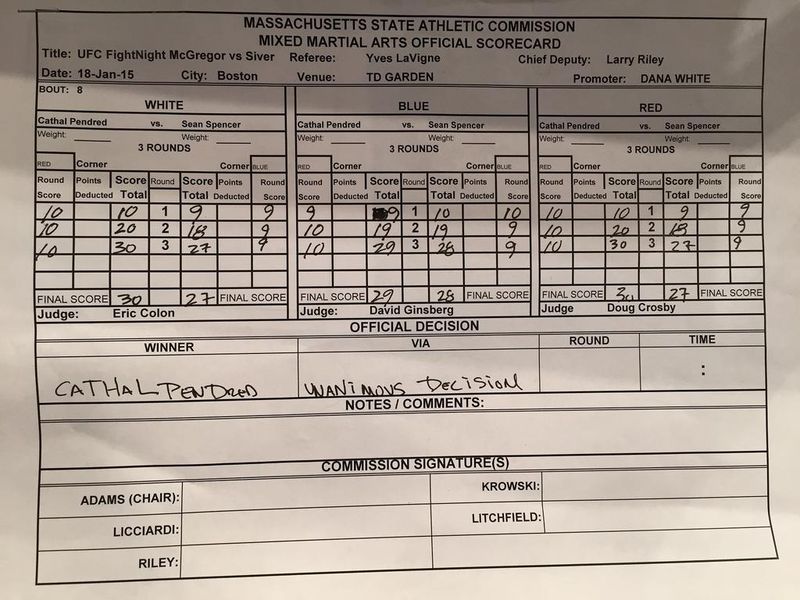 MASSACHUSETTS STATE ATHLETIC COMMISSION
MIXED MARTIAL ARTS OFFICIAL SCORECARD
Title: UFC FightNight McGregor vs Siver Referee: Yves LaVigne Chief Deputy: Larry Riley
Date: 18-Jan-15 City: Boston Venue: TD GARDEN Promoter: DANA WHITE
BOUT: 8
WHITE BLUE RED
Cathal Pendred vs. Sean Spencer Cathal Pendred vs. Sean Spencer Cathal Pendred vs. Sean Spencer
Weight: Weight: Weight: Weight: Weight: Weight:
3 ROUNDS 3 ROUNDS 3 ROUNDS
RED Corner Corner BLUE RED Corner Corner BLUE RED Corner Corner BLUE
Round Points Score Round Score Points Round Round Points Score Round Score Points Round Round Points Score Round Score Points Round
Score Deducted Total Total Deducted Score Score Deducted Total Total Deducted Score Score Deducted Total Total Deducted Score
10 10 1 9 9 9 9 1 10 10 10 10 1 9 9
10 20 2 18 9 10 19 2 19 9 10 20 2 18 9
10 30 3 27 9 10 29 3 28 9 10 30 3 27 9
FINAL SCORE 30 27 FINAL SCORE FINAL SCORE 29 28 FINAL SCORE FINAL SCORE 30 27 FINAL SCORE
Judge: Eric Colon Judge: David Ginsberg Judge Doug Crosby
OFFICIAL DECISION
WINNER VIA ROUND TIME
CATHAL PENDRED UNANIMOUS DECISION :
NOTES / COMMENTS:
COMMISSION SIGNATURE(S)
ADAMS (CHAIR): KROWSKI:
LICCIARDI: LITCHFIELD:
RILEY: